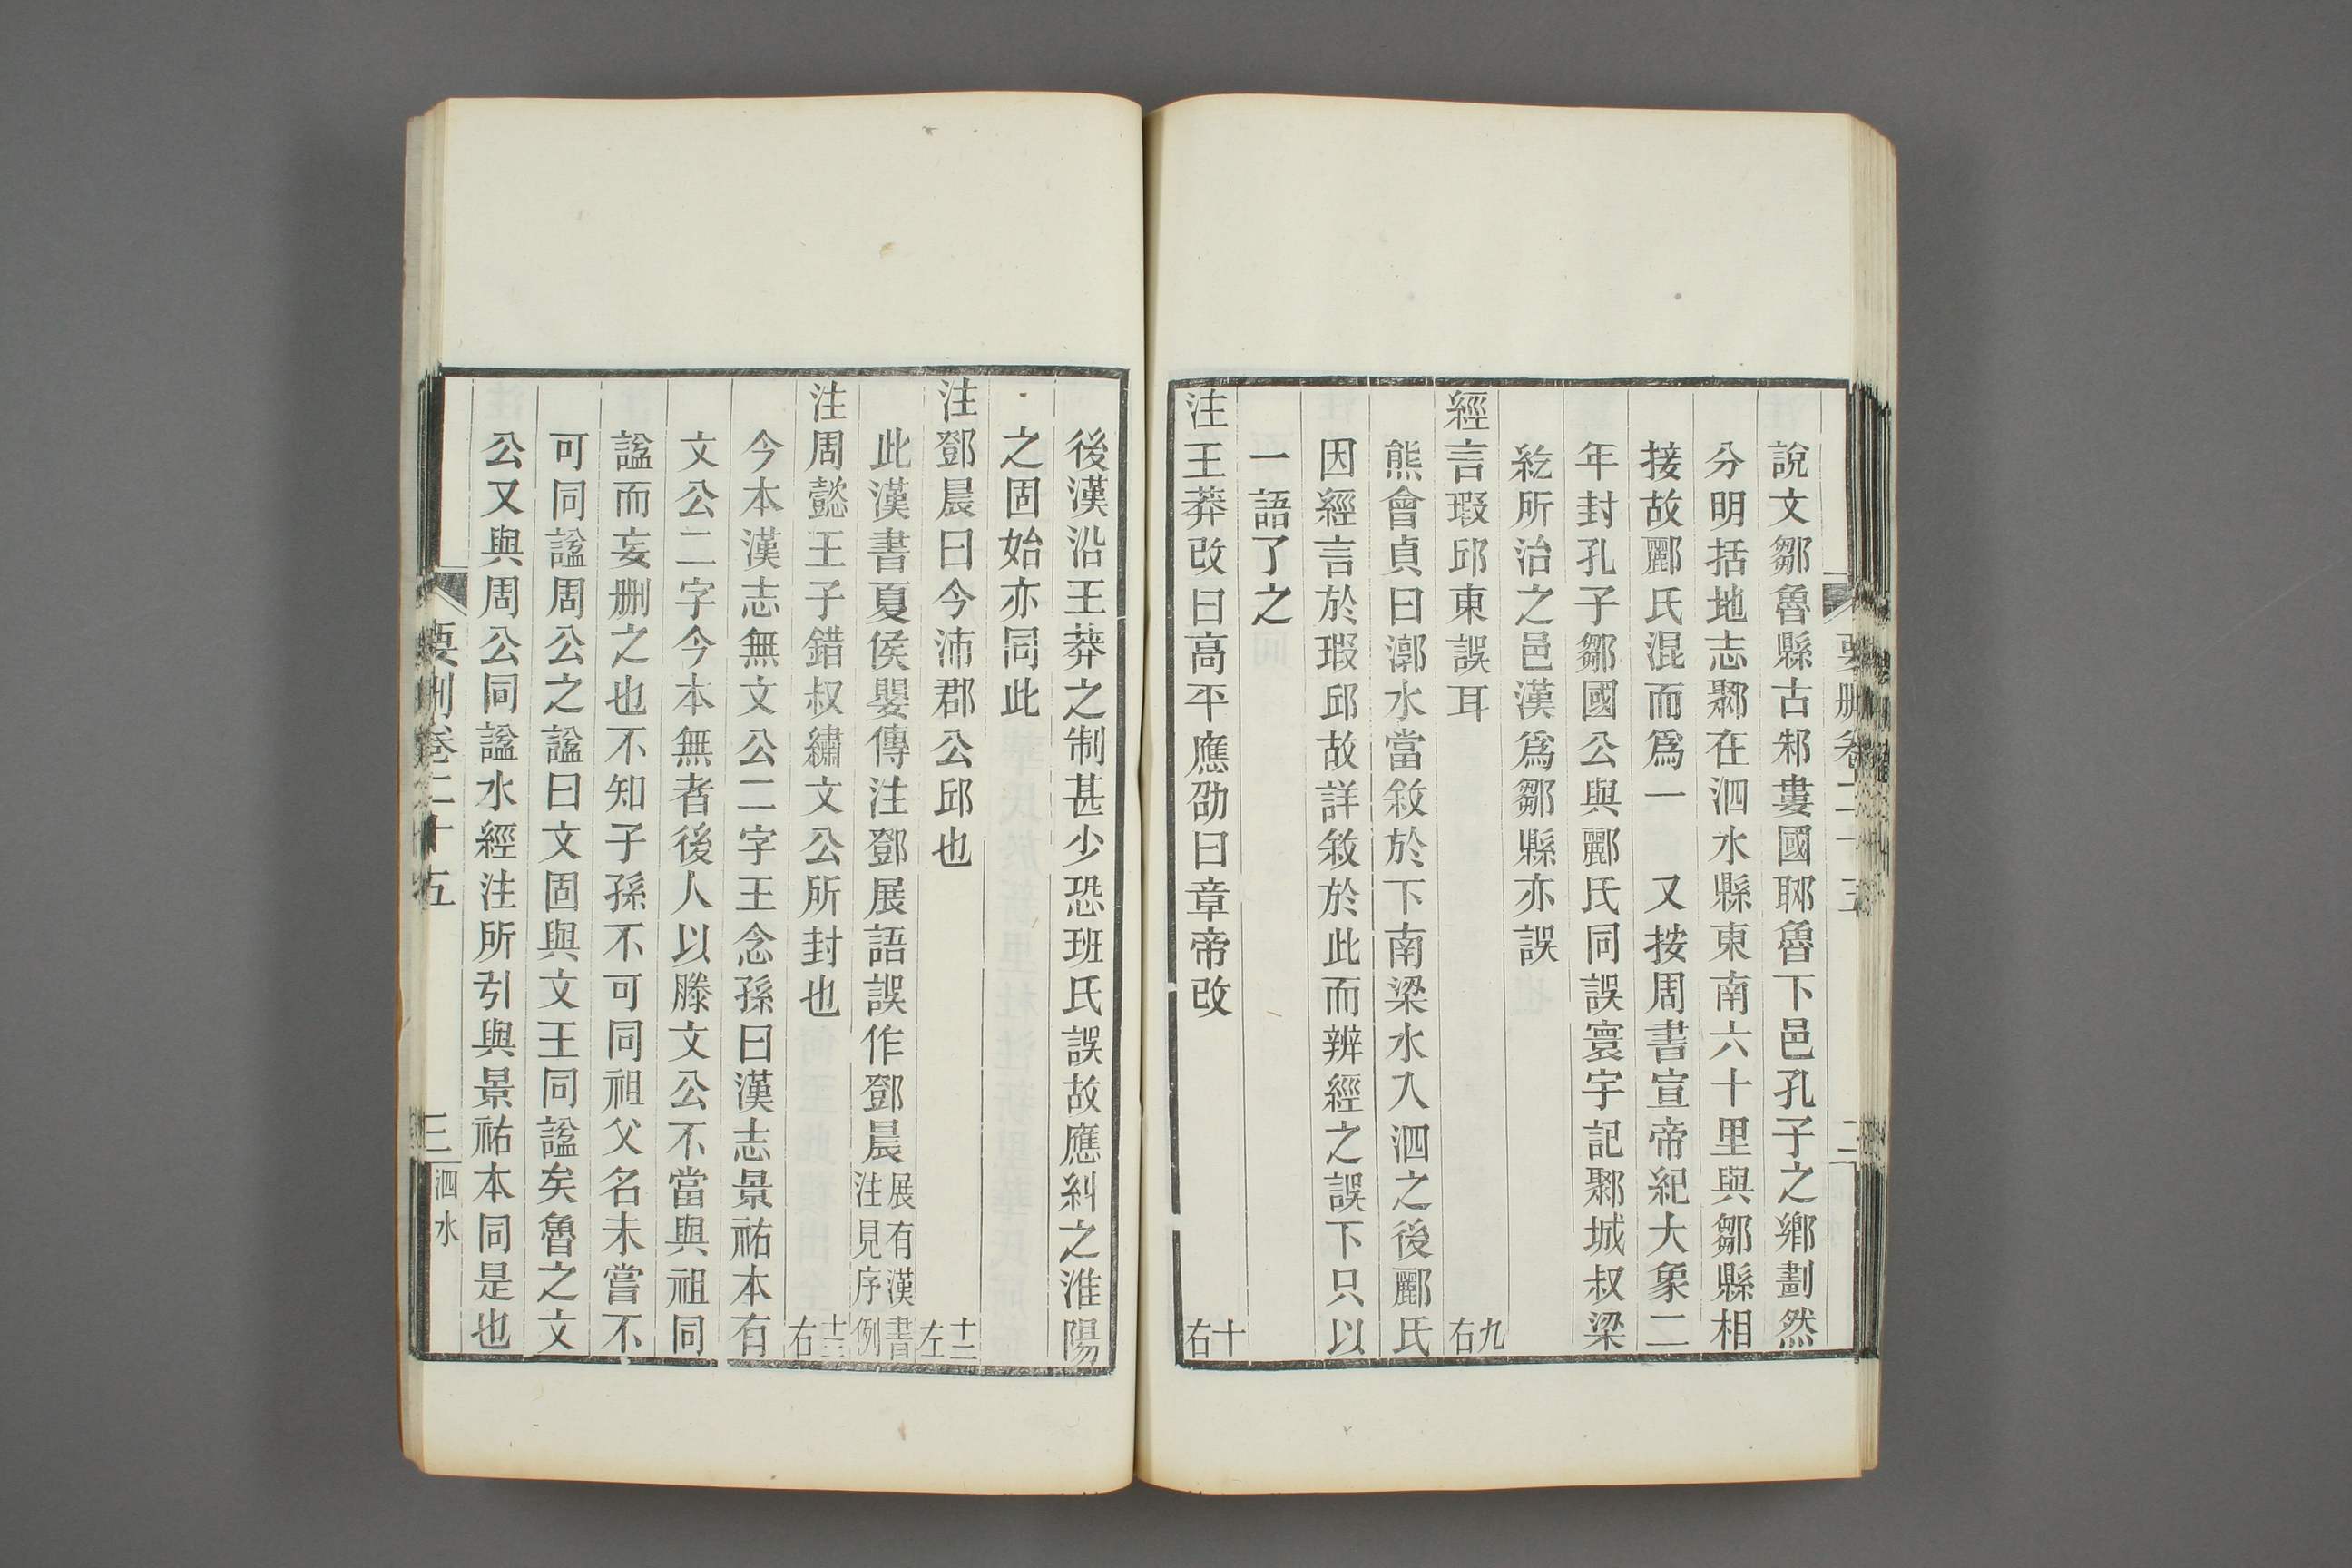 要刪卷二十五
二
說文鄒魯縣古邾婁國郰魯下邑孔子之鄉劃然
分明括地志鄹在泗水縣東南六十里與鄒縣相
接故酈氏混而爲一　又按周書宣帝紀大象二
年封孔子鄒國公與酈氏同誤寰宇記鄹城叔梁
紇所治之邑漢爲鄒縣亦誤
經言瑕邱東誤耳
九右
熊會貞曰漷水當敘於下南梁水入泗之後酈氏
因經言於瑕邱故詳敘於此而辨經之誤下只以
一語了之
注王莽改曰高平應劭曰章帝改
十右
後漢沿王莽之制甚少恐班氏誤故應糾之淮陽
之固始亦同此
注鄧晨曰今沛郡公邱也
十二左
此漢書夏侯嬰傳注鄧展語誤作鄧晨展有漢書注見序例
注周懿王子錯叔繡文公所封也
十三右
今本漢志無文公二字王念孫曰漢志景祐本有
文公二字今本無者後人以滕文公不當與祖同
諡而妄刪之也不知子孫不可同祖父名未嘗不
可同諡周公之諡曰文固與文王同諡矣魯之文
公又與周公同諡水經注所引與景祐本同是也
要刪卷二十五
三
泗水